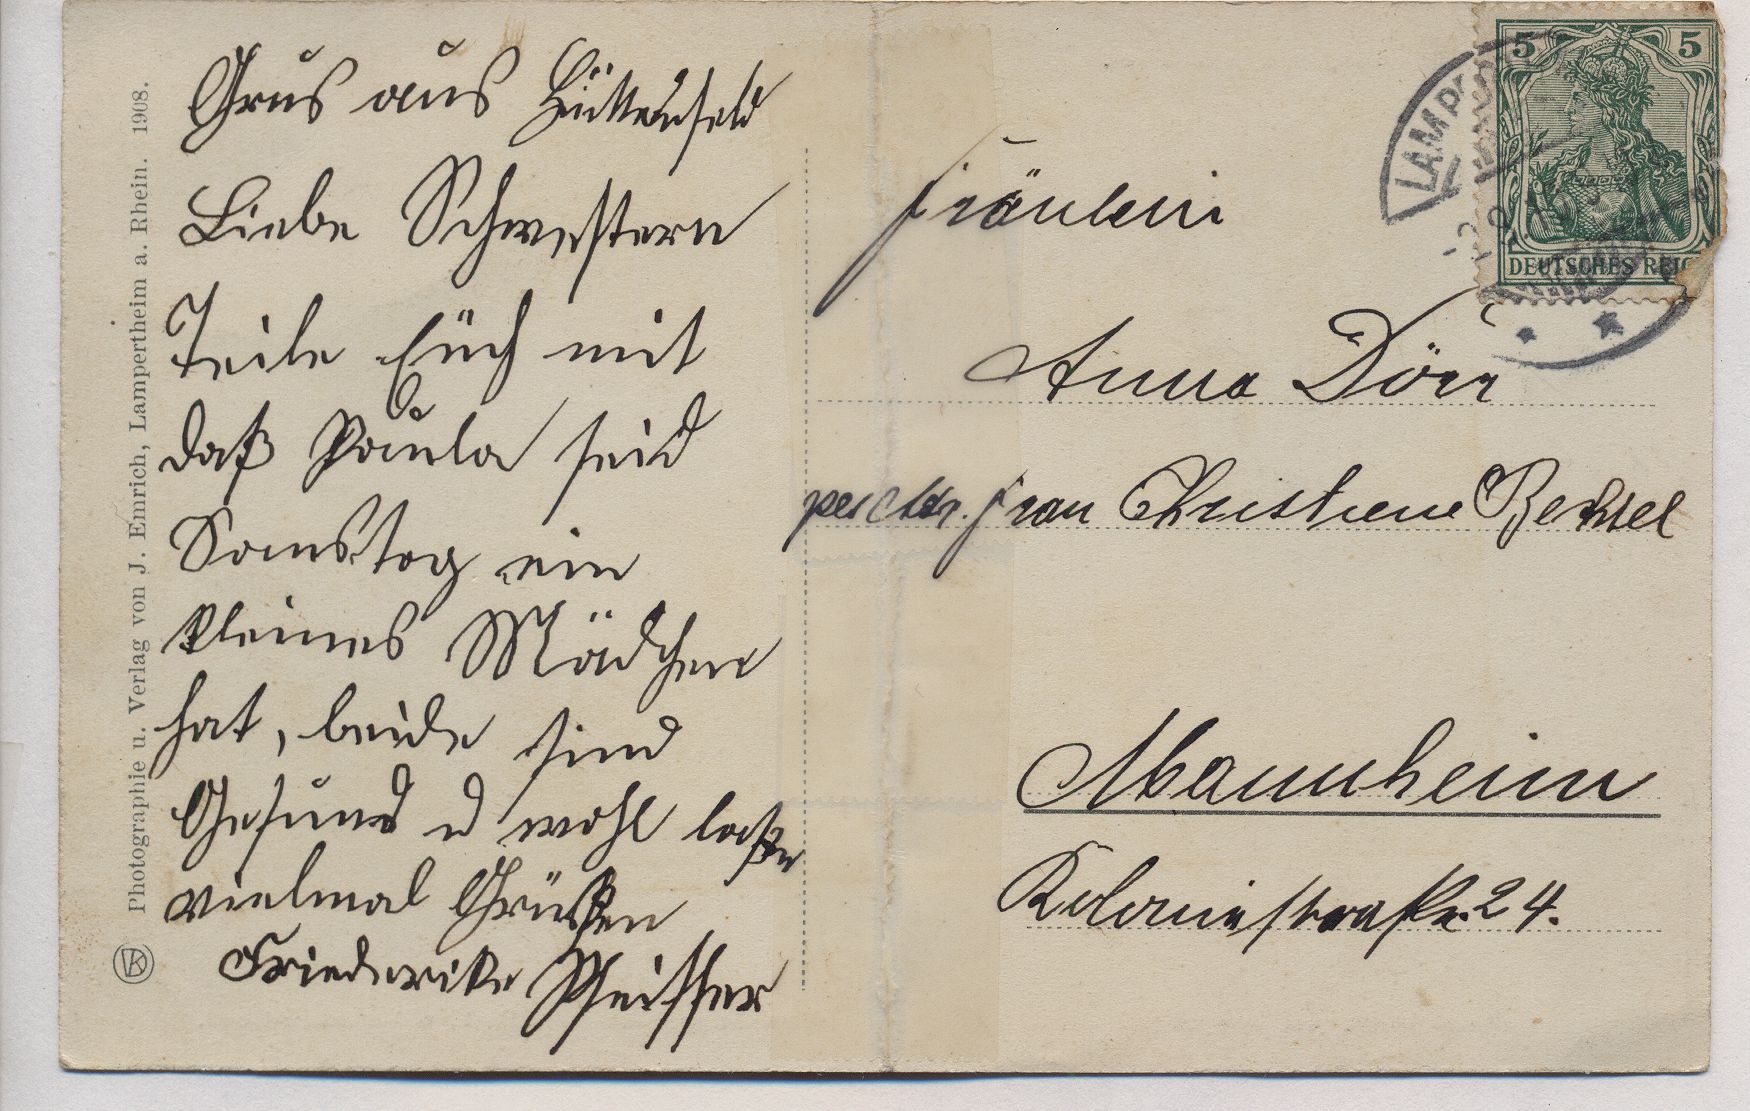 Grus aus Hüttenfeld
Liebe Schwestern
Teile Euch mit
daß Paula seid
Samstag ein
kleines Mädchen
hat, beide sind
Gesund u wohl laßen
vielmal Grüßen
Friederike Pfeiffer
Fräulein
Anna Dörr
per Adr. Frau Christiene Bechtel
Mannheim
Kolonistraße 24.
Photographie u. Verlag von J. Emrich, Lampertheim a. Rhein. 1908.
VK
5 5
DEUTSCHES REIC
LAMP